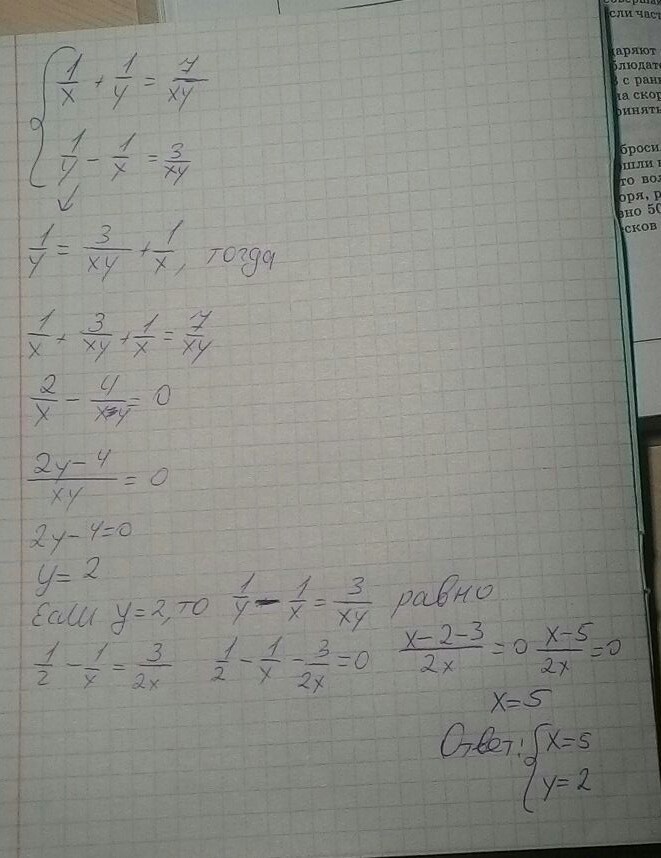 { 1/x + 1/y = 7/xy
1/y - 1/x = 3/xy
↓
1/y = 3/xy + 1/x, тогда
1/x + 3/xy + 1/x = 7/xy
2/x - 4/xy = 0
(2y-4)/xy = 0
2y-4=0
y=2
Если y=2, то 1/y - 1/x = 3/xy равно
1/2 - 1/x = 3/2x 1/2 - 1/x - 3/2x = 0 (x-2-3)/2x = 0 (x-5)/2x = 0
x=5
Ответ: { x=5
y=2
если част
аряют
блюдате
с ран
на скор
бросил
шли
то вол
оря, р
вно 50
сков